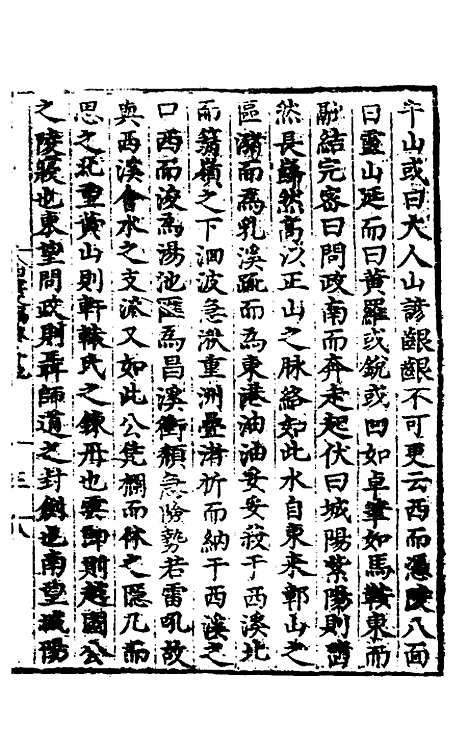 牛山或曰大人山諺齦齦不可更云西而憑陵八面
曰靈山延而曰黄羅或銳或凹如卓筆如馬鞍東而
融結完密曰問政南而奔走起伏曰城陽紫陽則
然長巋然高以正山之脉絡如此水自東來鄣山之
區瀦而爲乳溪䟽而爲東港油油妥妥殺于西溪北
而箬嶺之下洄波急瀨重洲疊渚折而納于西溪之
口西而浚爲湯池匯爲昌溪衝頽急險勢若雷吼故
與西溪會水之支流又如此公凭欄而休之隱几而
思之北望黄山則軒轅氏之鍊丹也雲郎則越國公
之陵寢也東望問政則聶師道之封劍也南望城陽